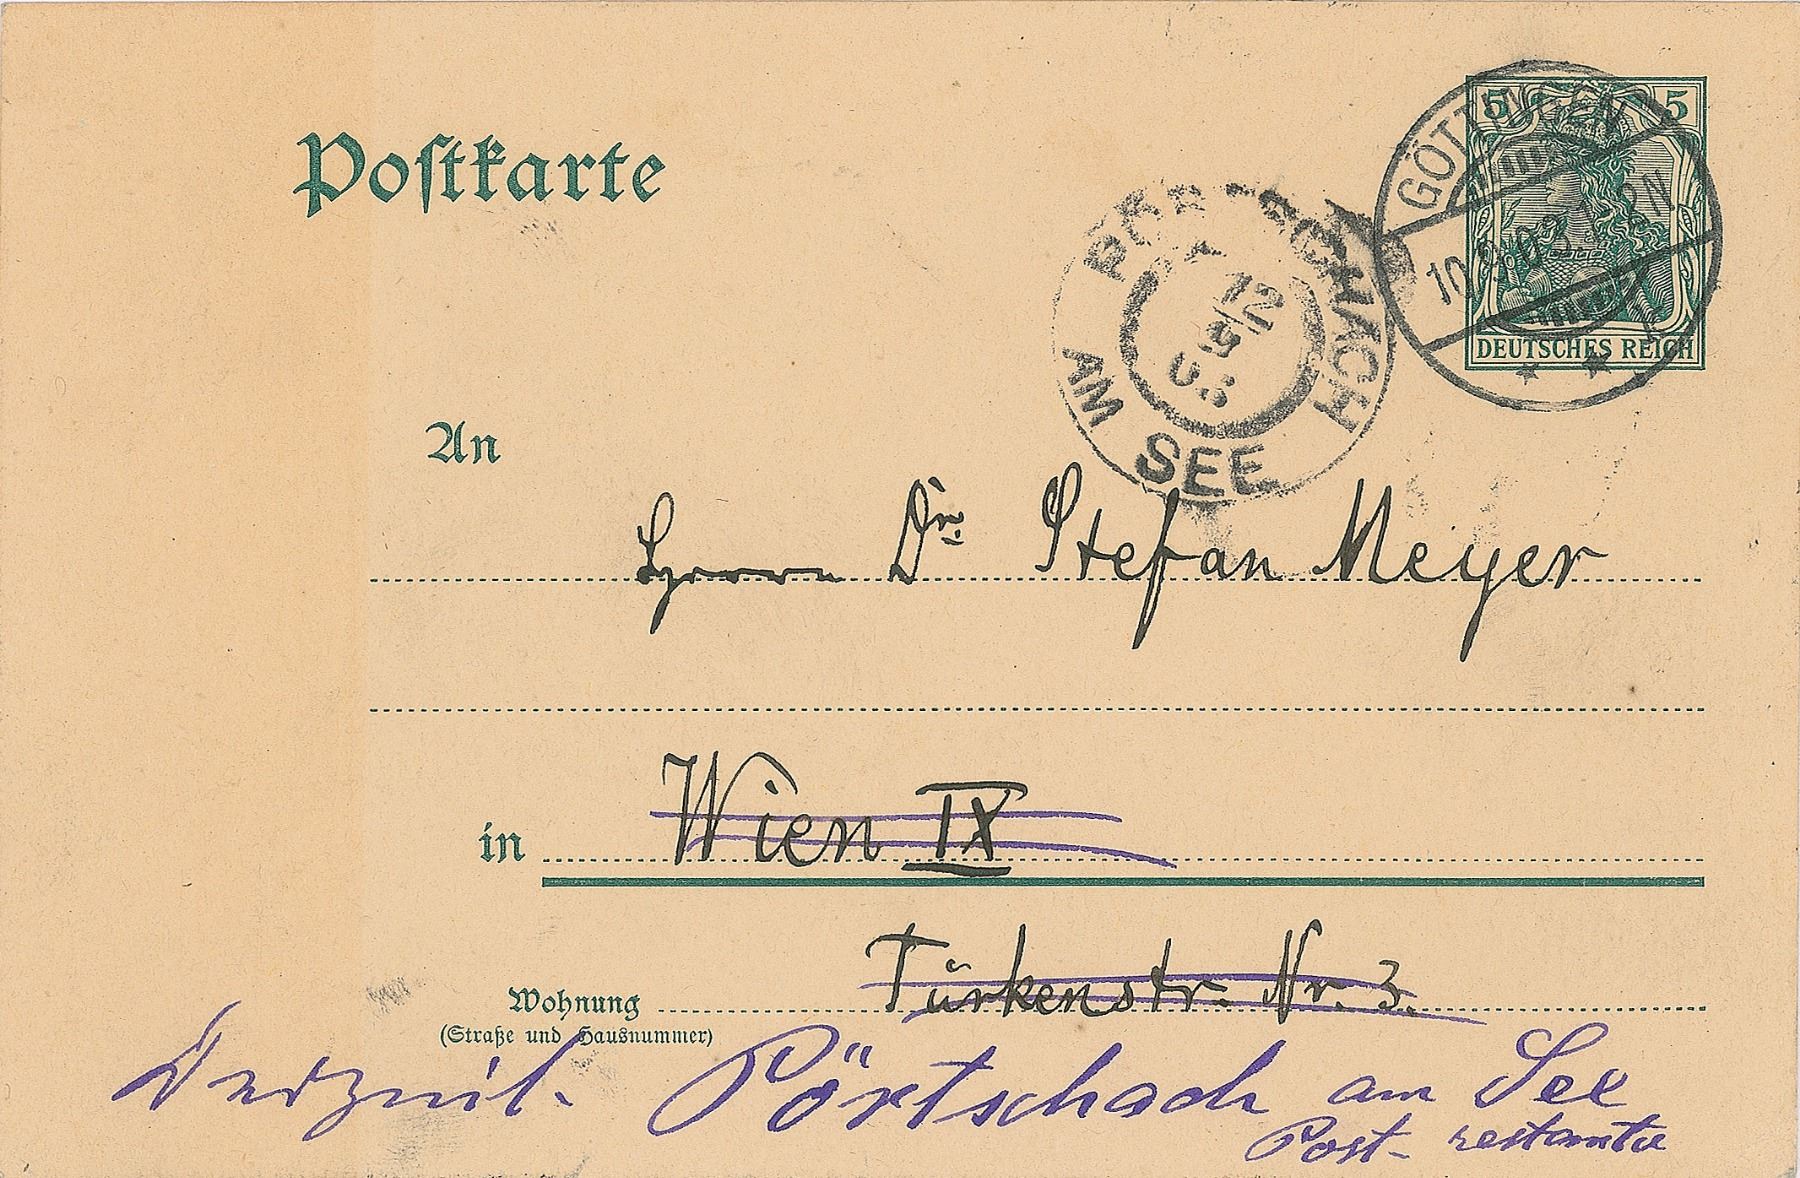 Postkarte
5 5
DEUTSCHES REICH
GÖTTINGEN
10.9.03. N
PÖRTSCHACH
AM SEE
12
9
03
An
Herrn Dr. Stefan Meyer
in Wien IX
Wohnung Türkenstr. Nr. 3.
(Straße und Hausnummer)
Derzeit. Pörtschach am See
Post-restante